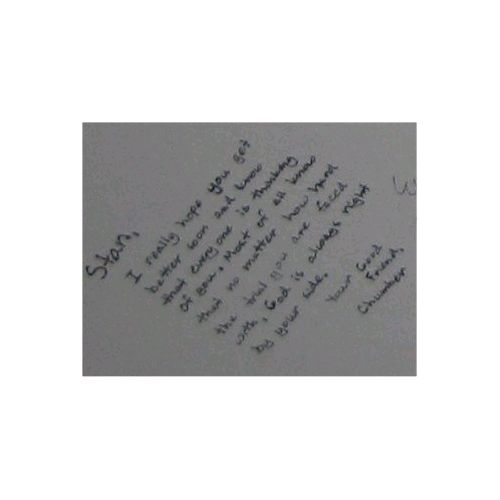 Stan,
I really hope you get
better soon and know
that every one is thinking
of you. Most of all know
that no matter how hard
the trial you are faced
with, God is always right
by your side.
Your Good
Friend,
Chumber
W